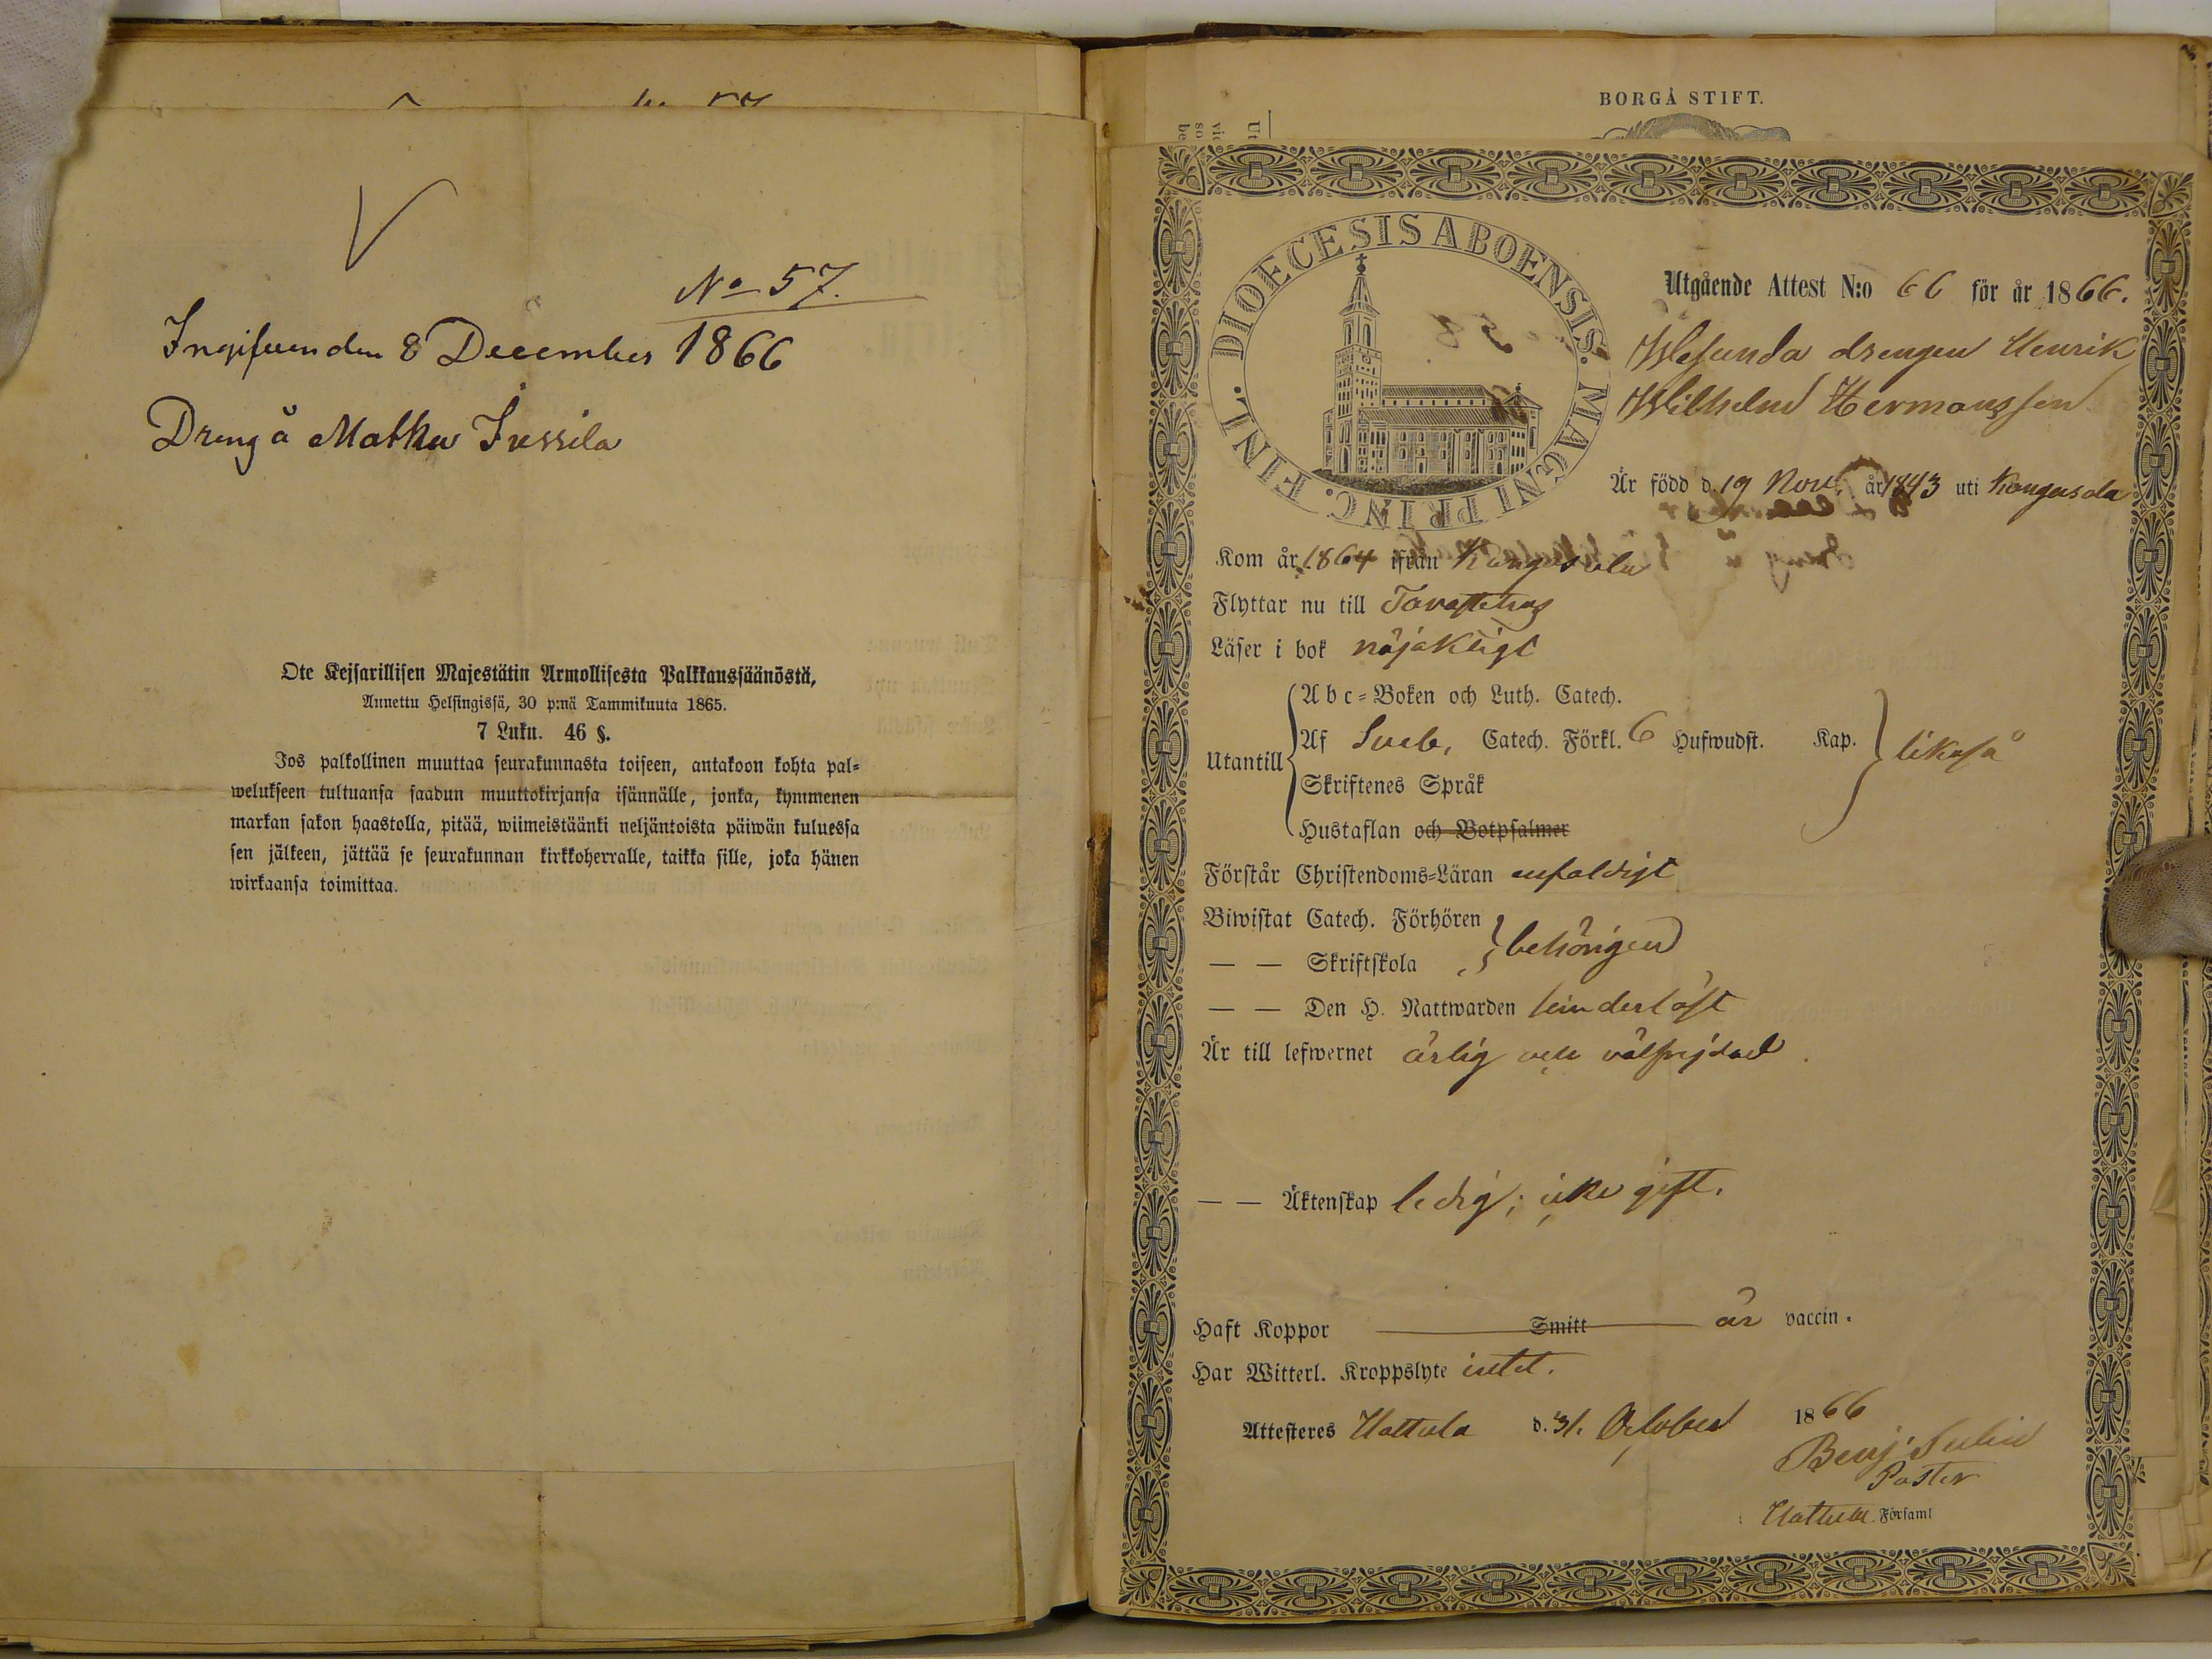 No 57.
Ingifven den 8 December 1866
Dreng å Matku Jussila
Ote Kejsarillisen Majestätin Armollisesta Palkkaussäänöstä,
Annettu Helsingissä, 30 p:nä Tammikuuta 1865.
7 Luku. 46 §.
Jos palkollinen muuttaa seurakunnasta toiseen, antakoon kohta pal-
welukseen tultuansa saadun muuttokirjansa isännälle, jonka, kymmenen
markan sakon haastolla, pitää, wiimeistäänki neljäntoista päiwän kuluessa
sen jälkeen, jättää se seurakunnan kirkkoherralle, taikka sille, joka hänen
wirkaansa toimittaa.
BORGÅ STIFT.
DIOECESIS ABOENSIS. MAGNI PRINC. FINL.
Utgående Attest N:o 66 för år 1866.
drengen Henrik
Wilhelm Hermansson
Är född d. 19 Nov. år 1843 uti Kangasala
Kom år 1864 ifrån Kangasala
Flyttar nu till Tavastehus
Läser i bok nöjaktigt
Abc-Boken och Luth. Catech.
Utantill Af Sveb. Catech. Förkl. 6 Hufwudst. Kap. likaså
Skriftenes Språk
Hustaflan och Botpsalmer
Förstår Christendoms-Läran enfaldigt
Biwistat Catech. Förhören behörigen
— — Skriftskola
— — Den H. Nattwarden hinderlöst
Är till lefwernet ärlig och välfrejdad
— — Äktenskap ledig; icke gift.
Haft Koppor Smitt är vaccin.
Har Witterl. Kroppslyte intet.
Attesteres Hattula d. 31. October 1866
Benj.
Pastor
Hattula Församl